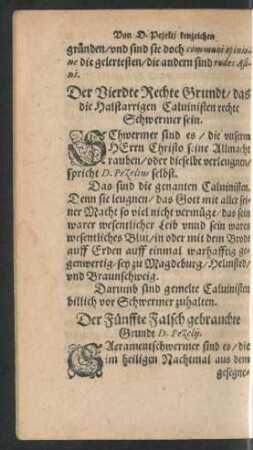 Von D. Pezelii kenzeichen
gründen/vnd sind sie doch communi opinio-
ne die gelertesten/die andern sind rudes Asi-
ni.
Der Vierdte Rechte Grundt/das
die Halstarrigen Caluinisten rechte
Schwermer sein.
SChwermer sind es/die vnserm
HErrn Christo seine Allmacht
rauben/oder dieselbe verleugnen/
spricht D. Pezelius selbst.
Das sind die genanten Caluinisten.
Denn sie leugnen/das Gott mit aller sei-
ner Macht so viel nicht vermüge/das sein
warer wesentlicher Leib vnnd sein wares
wesentliches Blut/in oder mit dem Brodt
auff Erden auff einmal warhafftig ge-
genwertig/sey zu Magdeburg/Helmsted/
vnd Braunschweig.
Darumb sind gemelte Caluinisten
billich vor Schwermer zuhalten.
Der Fünffte Falsch gebrauchte
Grundt D. Pezelij.
SAcramentschwermer sind es/die
im heiligen Nachtmal aus dem
gesegne-